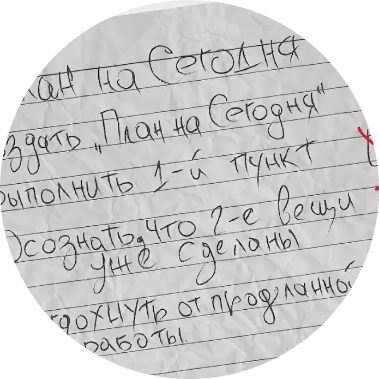 План на Сегодня
Создать „План на Сегодня"
Выполнить 1-й пункт
Осознать, что 2-е вещи
уже сделаны
Отдохнуть от проделанной
работы.